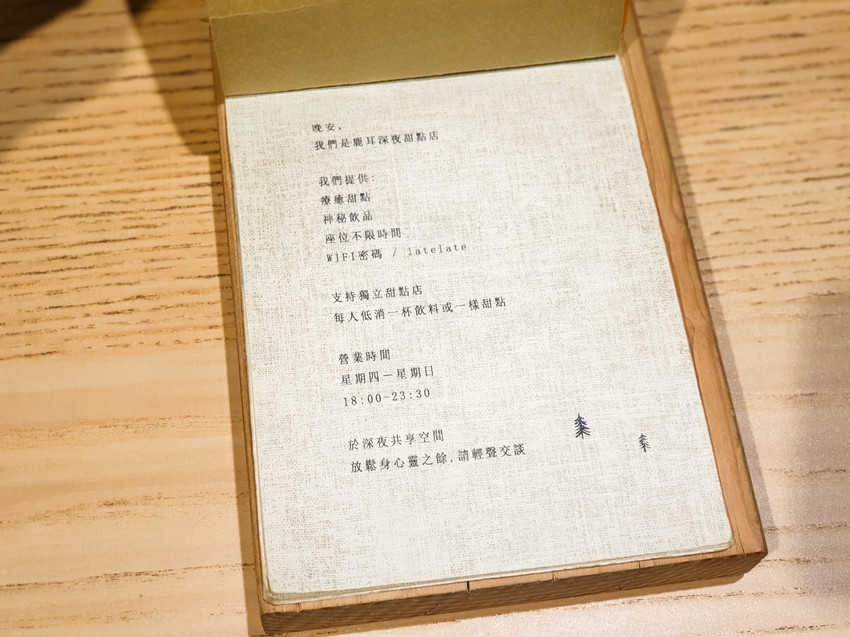 晚安，
我們是鹿耳深夜甜點店
我們提供：
療癒甜點
神秘飲品
座位不限時間
WIFI密碼 / latelate
支持獨立甜點店
每人低消一杯飲料或一樣甜點
營業時間
星期四－星期日
18:00-23:30
於深夜共享空間
放鬆身心靈之餘，請輕聲交談